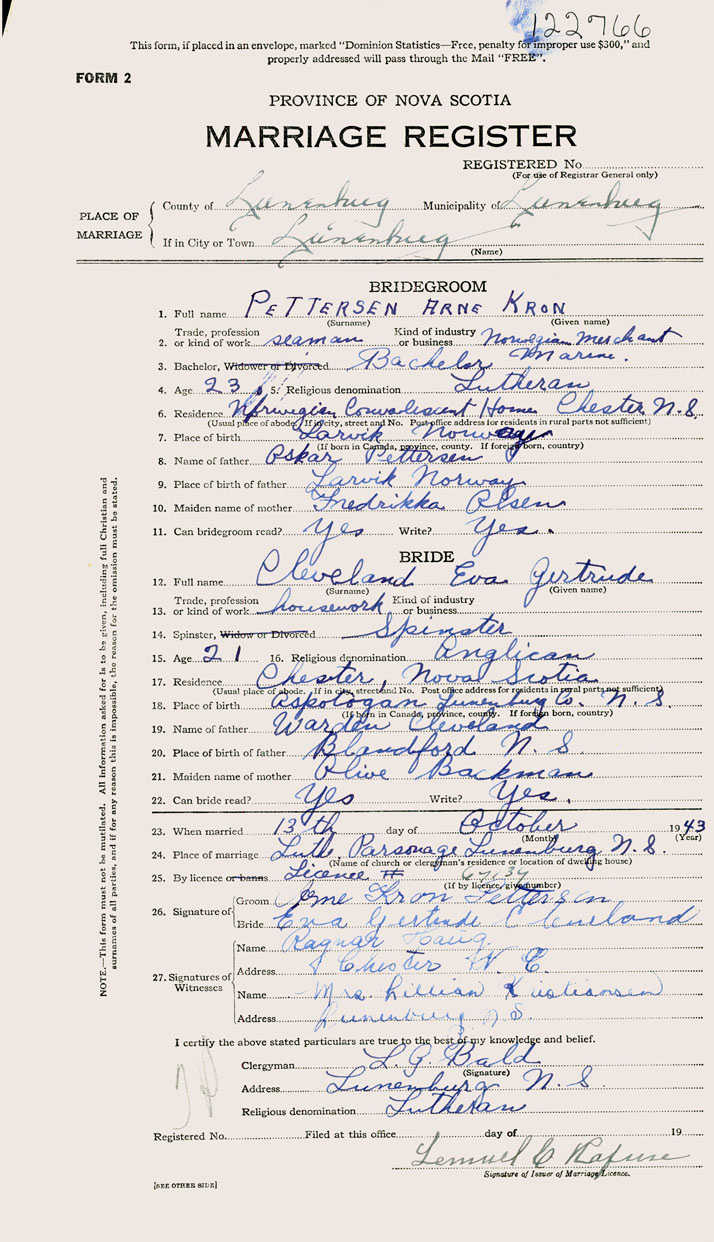 122766
This form, if placed in an envelope, marked "Dominion Statistics—Free, penalty for improper use $300," and
properly addressed will pass through the Mail "FREE".
FORM 2
PROVINCE OF NOVA SCOTIA
MARRIAGE REGISTER
REGISTERED No
(For use of Registrar General only)
PLACE OF MARRIAGE
County of Lunenburg Municipality of Lunenburg
If in City or Town Lunenburg
(Name)
BRIDEGROOM
1. Full name PETTERSEN ARNE KRON
(Surname) (Given name)
2. Trade, profession or kind of work seaman Kind of industry or business Norwegian Merchant Marine.
3. Bachelor, Widower or Divorced Bachelor
4. Age 23 5. Religious denomination Lutheran
6. Residence Norwegian Convalescent Home Chester N.S.
(Usual place of abode. If in city, street and No. Post office address for residents in rural parts not sufficient)
7. Place of birth Larvik Norway
(If born in Canada, province, county. If foreign born, country)
8. Name of father Oskar Pettersen
9. Place of birth of father Larvik Norway
10. Maiden name of mother Fredrikka Olsen
11. Can bridegroom read? Yes Write? Yes.
BRIDE
12. Full name Cleveland Eva Gertrude
(Surname) (Given name)
13. Trade, profession or kind of work housework Kind of industry or business
14. Spinster, Widow or Divorced Spinster
15. Age 21 16. Religious denomination Anglican
17. Residence Chester, Nova Scotia
(Usual place of abode. If in city, street and No. Post office address for residents in rural parts not sufficient)
18. Place of birth Aspotogan Lunenburg Co. N. S.
(If born in Canada, province, county. If foreign born, country)
19. Name of father Warden Cleveland
20. Place of birth of father Blandford N. S.
21. Maiden name of mother Olive Backman
22. Can bride read? Yes Write? Yes.
23. When married 13th day of October 1943
(Month) (Year)
24. Place of marriage Luth. Parsonage Lunenburg N. S.
(Name of church or clergyman's residence or location of dwelling house)
25. By licence or banns Licence # 67134
(If by licence, give number)
26. Signature of Groom Arne Kron Pettersen
Bride Eva Gertrude Cleveland
27. Signatures of Witnesses
Name Ragnar Haug
Address Chester
Name Mrs. Lillian Kristiansen
Address Lunenburg N.S.
I certify the above stated particulars are true to the best of my knowledge and belief.
Clergyman L. G. Bald
(Signature)
Address Lunenburg N. S.
Religious denomination Lutheran
Registered No. Filed at this office day of 19
Lemuel C Rafuse
Signature of Issuer of Marriage Licence.
[SEE OTHER SIDE]
NOTE.—This form must not be mutilated. All information asked for is to be given, including full Christian and
surnames of all parties, and if for any reason this is impossible, the reason for the omission must be stated.